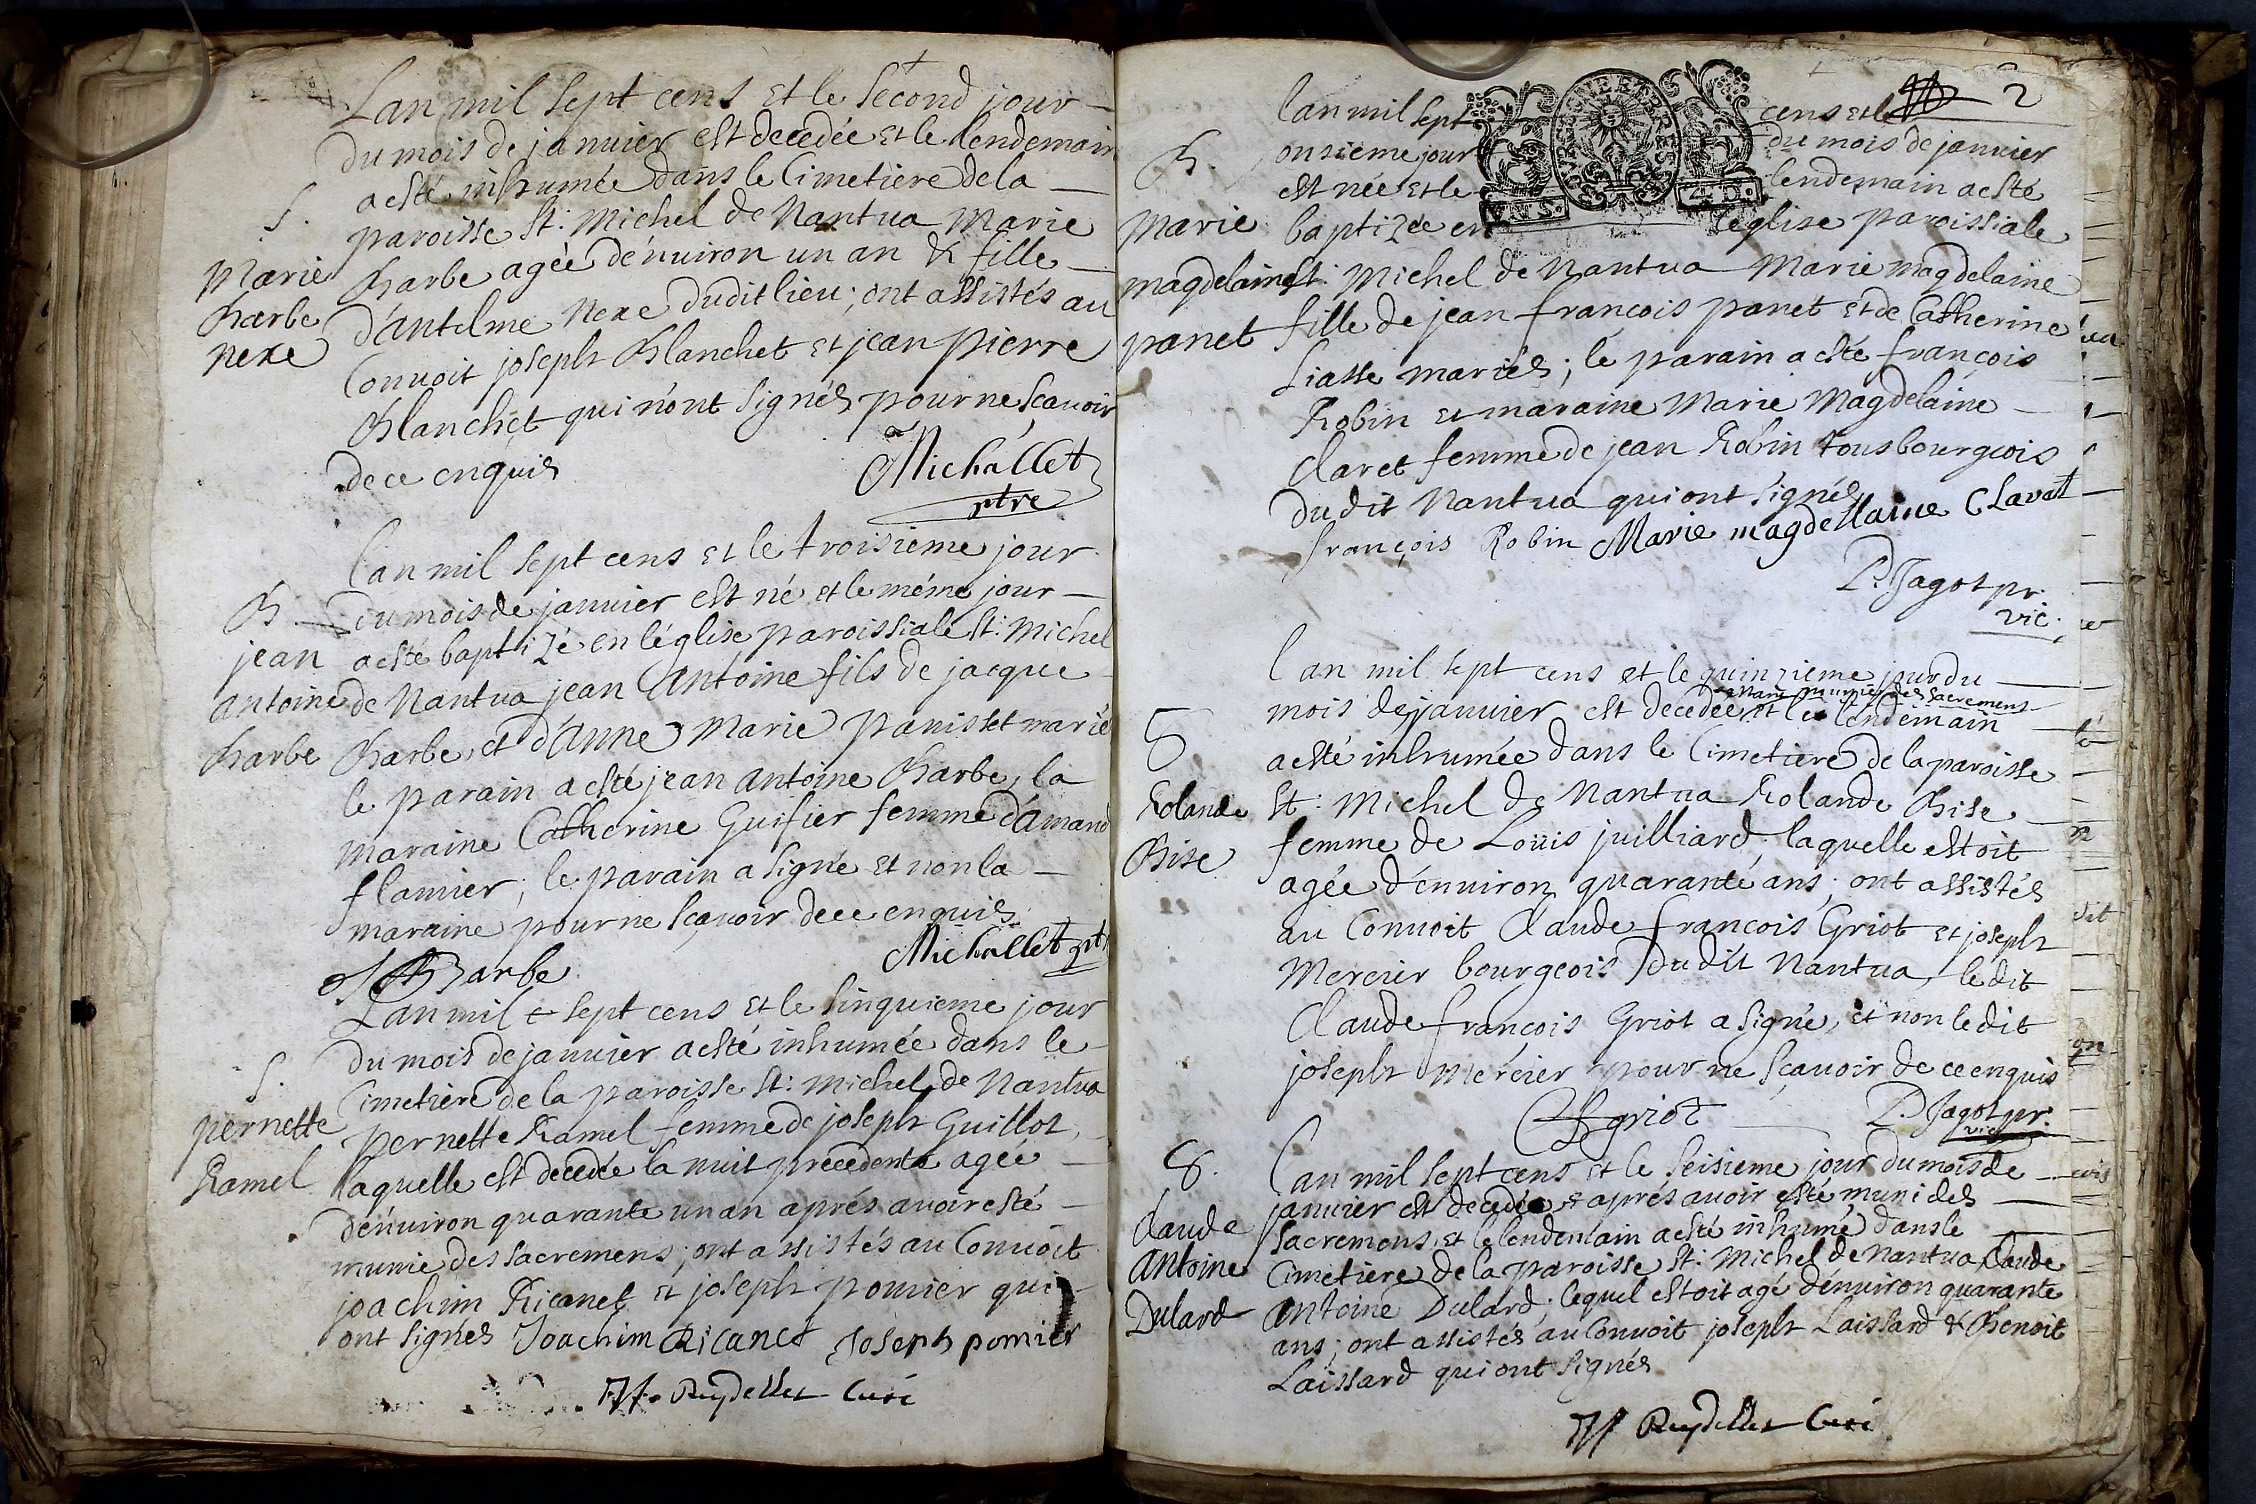 Lan mil sept cens et le second jour
du mois de januier est decedée et le lendemain
a esté inhumée dans le Cimetiere de la
S. paroisse St: Michel de Nantua Marie
Marie Barbe agée d'enuiron un an & fille
Barbe d'Antelme Nexe dudit lieu; ont assistés au
nexe Conuoit joseph Blanchet et jean pierre
Blanchet qui n'ont signés pour ne scauoir
de ce enquis
Michallet
ptre
Lan mil sept cens et le troisieme jour
B du mois de januier est né et le méme jour
jean a esté baptizé en léglise paroissiale St: Michel
antoine de Nantua jean Antoine fils de jacque
Barbe Barbe, et d'Anne Marie panistet mariés
le parain a esté jean Antoine Barbe, la
maraine Catherine Guifier femme d'amand
flamier; le parain a signé et non la
maraine pour ne sçauoir de ce enquis
Michallet ptre
JABarbe
Lan mil sept cens et le sinquieme jour
du mois de januier a esté inhumée dans le
S. Cimetiere de la paroisse St: Michel de Nantua
pernette pernette Ramel femme de joseph Guillot,
Ramel laquelle est decedée la nuit precedente agée
d'enuiron quarante un an aprés auoir esté
munie des sacremens; ont assistés au Conuoit
joachim Ricanet et joseph pomier qui
ont signés Joachim Ricanet Joseph pomier
Ruydellet Curé
2
lan mil sept cens et le
B. onsieme jour du mois de januier
est née et le lendemain a esté
Marie baptizée en l'église paroissiale
magdelaine St: Michel de Nantua Marie magdelaine
panet fille de jean françois panet et de Catherine
Liasse mariés; le parain a esté françois
Robin et maraine Marie Magdelaine
Claret femme de jean Robin tous bourgeois
dudit Nantua qui ont signés
françois Robin Marie magdellaine Clavat
P. Jagot pr.
vic.
BOURGOGNE ET BRESSE
4.D.
lan mil sept cens et le quinzieme jour du
estant munie des sacremens
mois de januier est decedée et le lendemain
S a esté inhumée dans le Cimetiere de la paroisse
Rolande St: Michel de Nantua Rolande Bise
Bise femme de Loüis juilliard, laquelle estoit
agée d'enuiron quarante ans; ont assistés
au Conuoit Claude françois Griot et joseph
Mercier bourgeois dudit Nantua, ledit
Claude françois Griot a signé, et non ledit
joseph Mercier pour ne sçauoir de ce enquis
griot P. Jagot pr.
vic
S. Lan mil sept cens et le seisieme jour du mois de
januier est decedé aprés auoir esté muni des
Claude sacremens, et le lendemain a esté inhumé dans le
Antoine Cimetiere de la paroisse St: Michel de Nantua Claude
Dulard Antoine Dulard; lequel estoit agé d'enuiron quarante
ans; ont assistés au Conuoit joseph Laissard & Benoit
Laissard qui ont signés
Ruydellet Curé